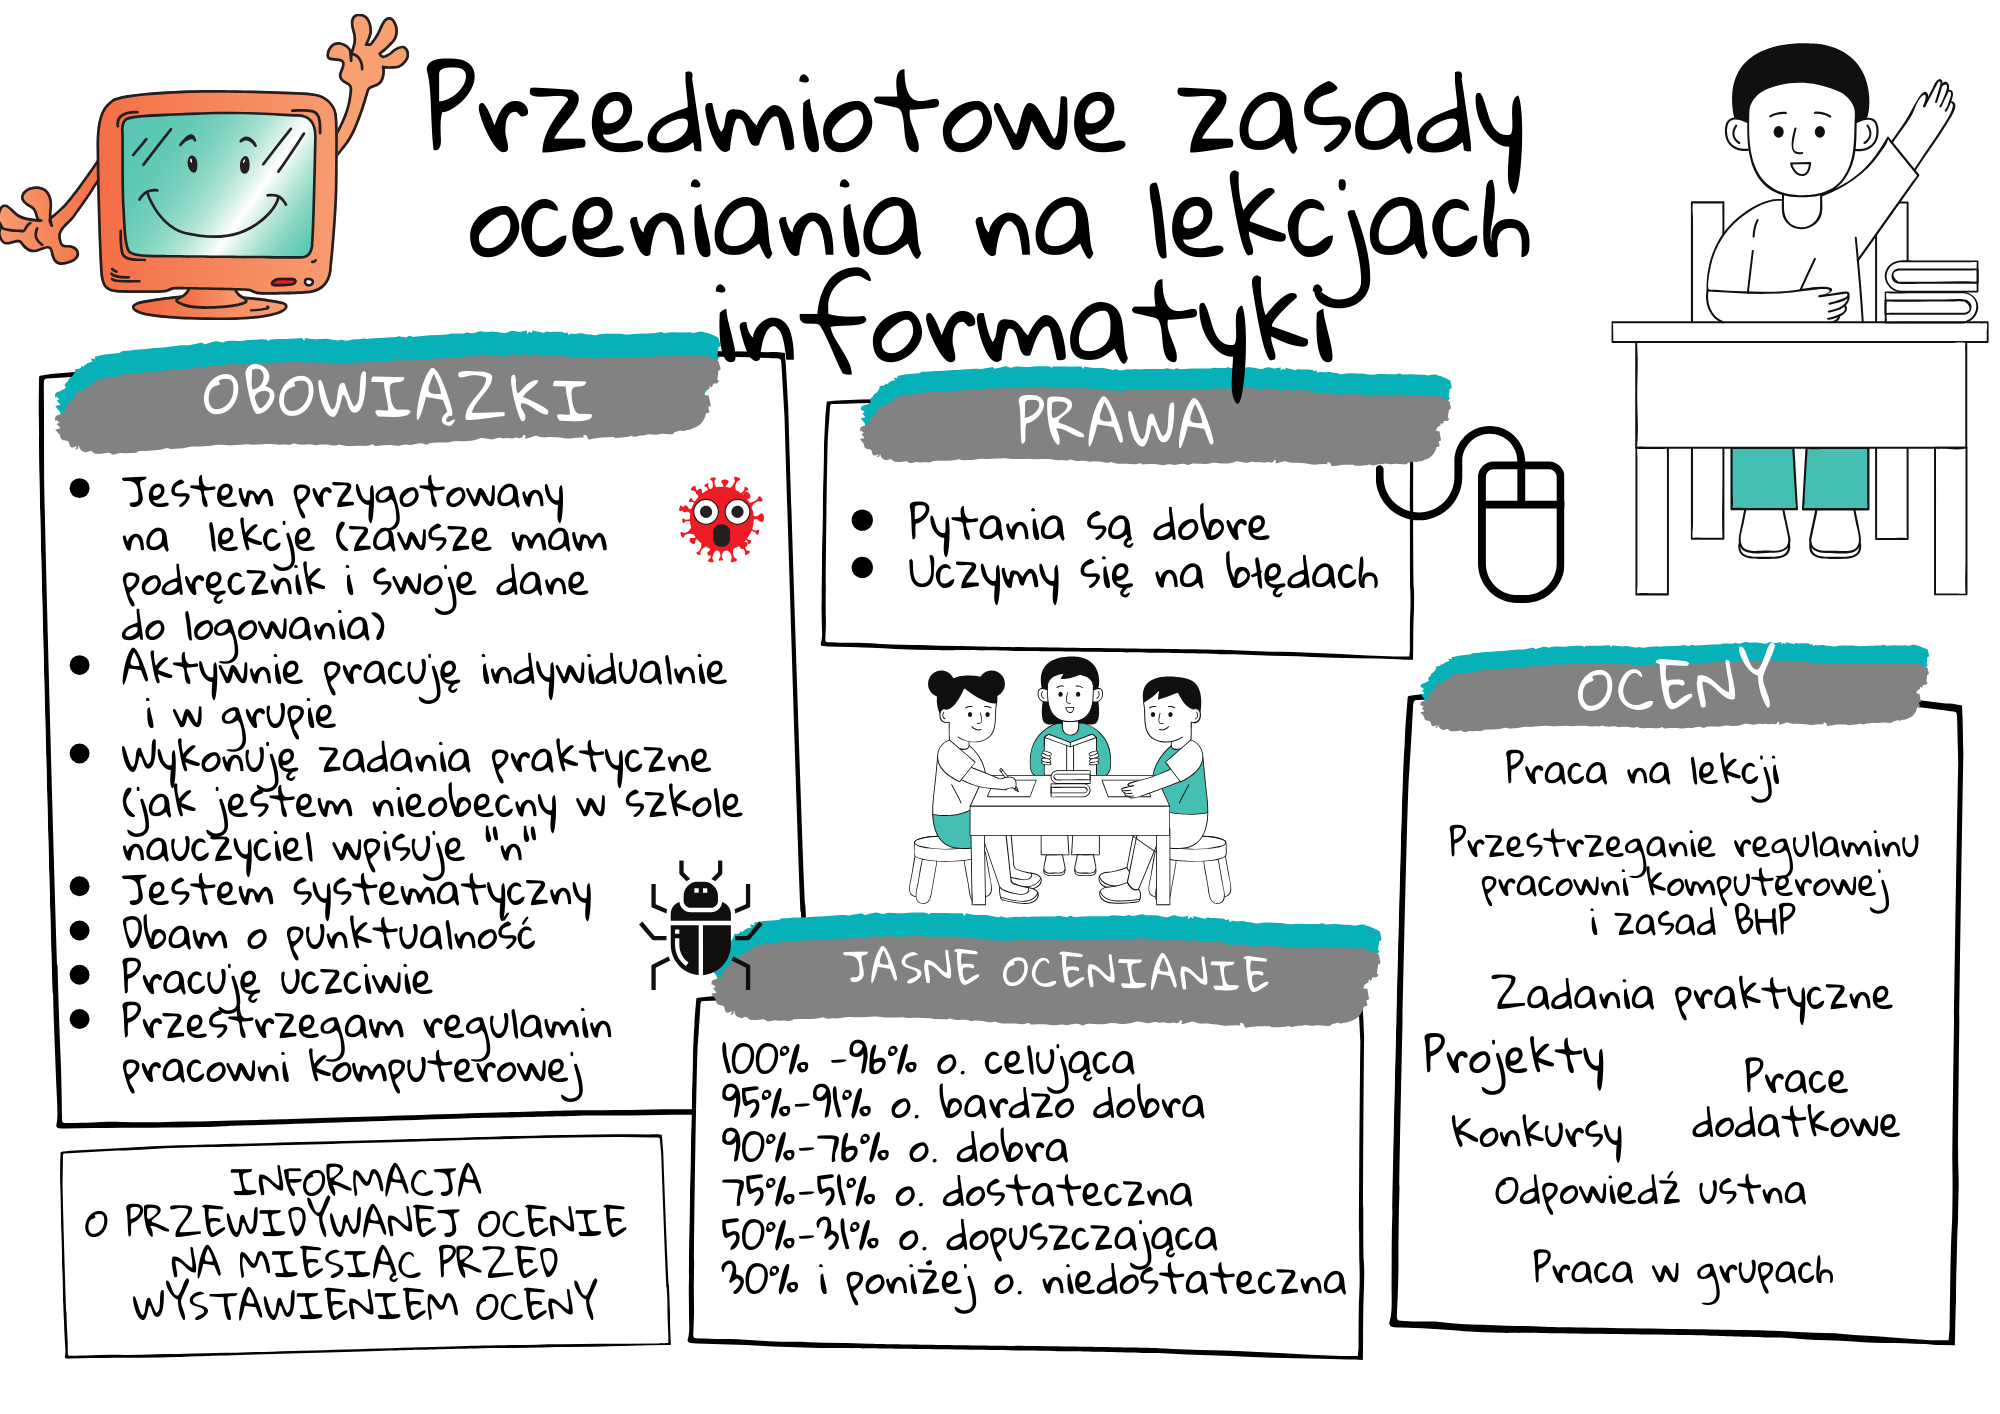 Przedmiotowe zasady
oceniania na lekcjach
informatyki
OBOWIĄZKI
Jestem przygotowany
na lekcje (zawsze mam
podręcznik i swoje dane
do logowania)
Aktywnie pracuję indywidualnie
i w grupie
Wykonuję zadania praktyczne
(jak jestem nieobecny w szkole
nauczyciel wpisuje "n"
Jestem systematyczny
Dbam o punktualność
Pracuję uczciwie
Przestrzegam regulamin
pracowni komputerowej
INFORMACJA
O PRZEWIDYWANEJ OCENIE
NA MIESIĄC PRZED
WYSTAWIENIEM OCENY
PRAWA
Pytania są dobre
Uczymy się na błędach
JASNE OCENIANIE
100% -96% o. celująca
95%-91% o. bardzo dobra
90%-76% o. dobra
75%-51% o. dostateczna
50%-31% o. dopuszczająca
30% i poniżej o. niedostateczna
OCENY
Praca na lekcji
Przestrzeganie regulaminu
pracowni komputerowej
i zasad BHP
Zadania praktyczne
Projekty
Prace
dodatkowe
Konkursy
Odpowiedź ustna
Praca w grupach